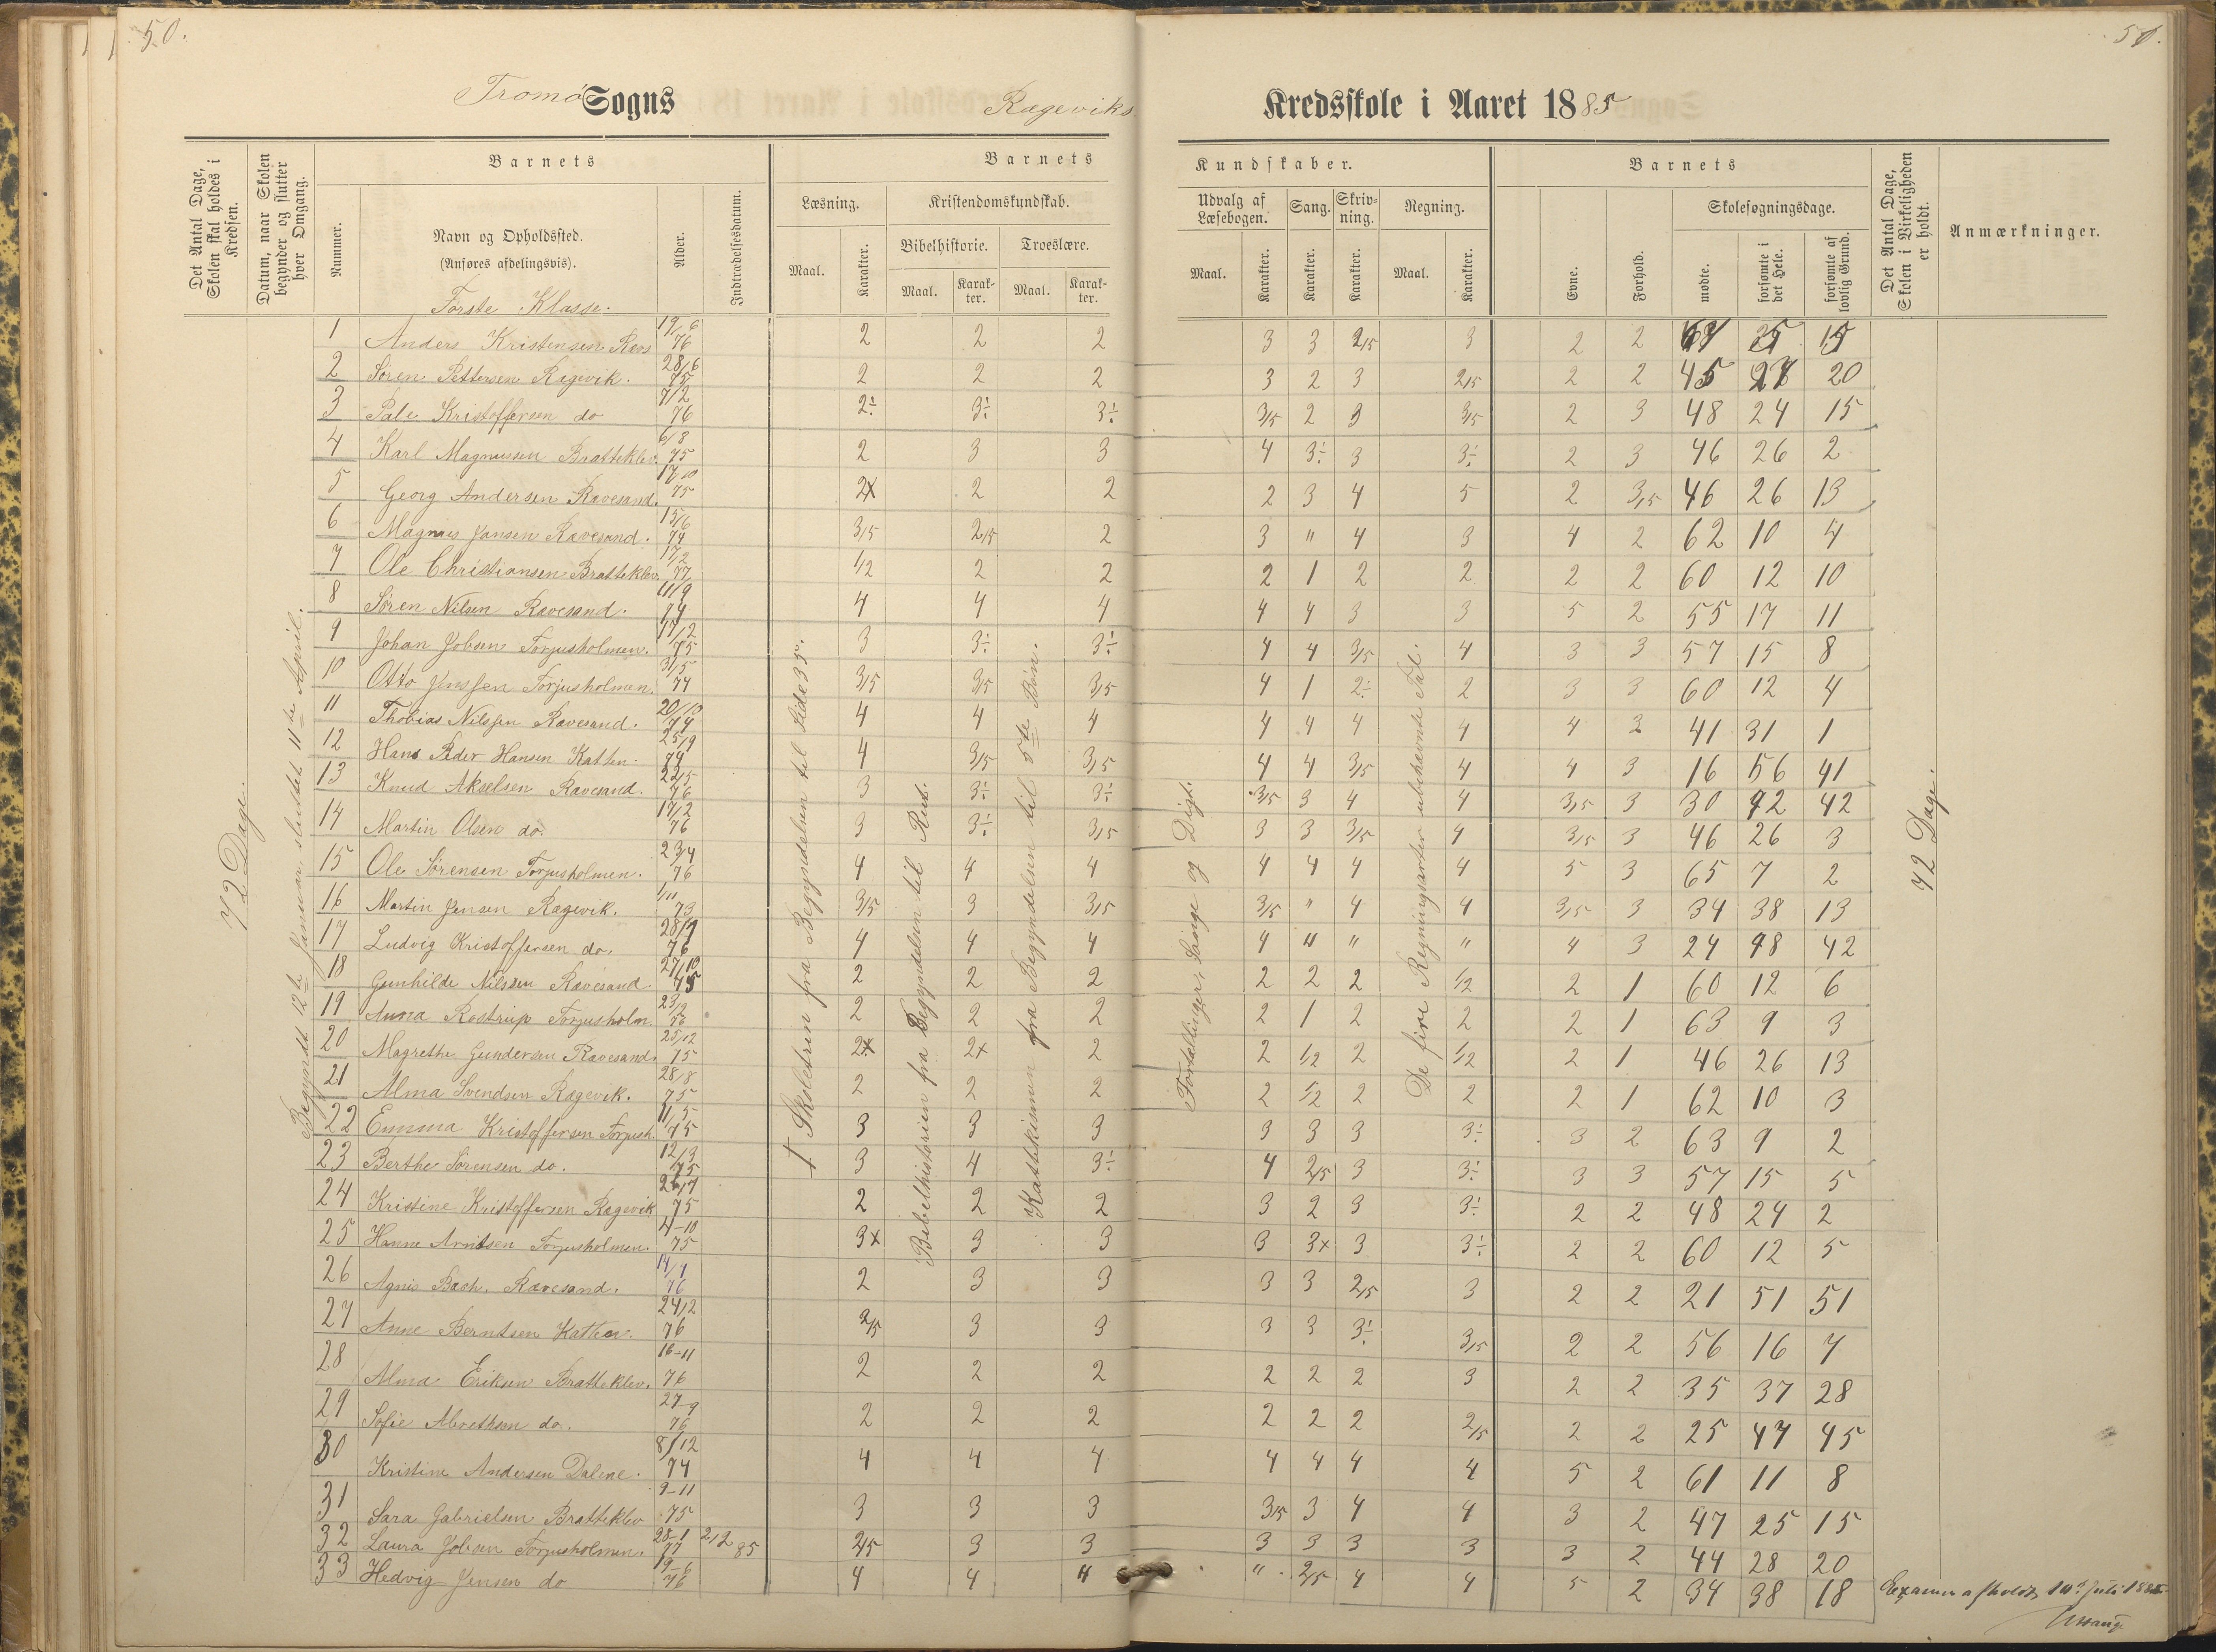 50.
51.
Tromø Sogns
Rægeviks Kredsskole i Aaret 1885
Det Antal Dage, Skolen skal holdes i Kredsen.
Datum, naar Skolen begynder og slutter hver Omgang.
Barnets
Nummer.
Navn og Opholdssted.
(Anføres afdelingsvis).
Første Klasse.
Alder.
Indtrædelsesdatum.
Barnets Kundskaber.
Læsning.
Maal.
Karakter.
Kristendomskundskab.
Bibelhistorie.
Maal.
Karakter.
Troeslære.
Maal.
Karakter.
Udvalg af Læsebogen.
Maal.
Karakter.
Sang.
Karakter.
Skrivning.
Karakter.
Regning.
Maal.
Karakter.
Barnets
Evne.
Forhold.
Skolesøgningsdage.
mødte.
forsømte i det Hele.
forsømte af lovlig Grund.
Det Antal Dage, Skolen i Virkeligheden er holdt.
Anmærkninger.
72 Dage.
Begyndt 12te Januar, sluttet 11te April.
† Skoletrin fra Begyndelsen til Side 35.
Bibelhistorien fra Begyndelsen til Rut.
Katekismen fra Begyndelsen til 5te Bøn.
Fortællinger, Sange og Digt.
De fire Regningsarter ubenævnte Tal.
72 Dage.
1 Anders Kristensen Ravs 19/6 76 2 2 2 3 3 2/5 3 2 2
2 Søren Pettersen Rægevik. 28/6 75 2 2 2 3 2 3 2/5 2 2 45 27 20
3 Pale Kristoffersen do 7/2 76 2÷ 3÷ 3÷ 3/5 2 3 3/5 2 3 48 24 15
4 Karl Magnussen Bratteklev. 6/8 75 2 3 3 4 3÷ 3 3÷ 2 3 46 26 2
5 Georg Andersen Ravesand. 17/10 75 2x 2 2 2 3 4 5 2 3/5 46 26 13
6 Magnus Jansen Ravesand. 15/6 74 3/5 2/5 2 3 " 4 3 4 2 62 10 4
7 Ole Christiansen Bratteklev. 17/2 77 1/2 2 2 2 1 2 2 2 2 60 12 10
8 Søren Nilsen Ravesand. 11/9 74 4 4 4 4 4 3 3 5 2 55 17 11
9 Johan Jobsen Torjusholmen. 17/12 75 3 3÷ 3÷ 4 4 3/5 4 3 3 57 15 8
10 Otto Jenssen Torjusholmen. 31/5 74 3/5 3/5 3/5 4 1 2÷ 2 3 3 60 12 4
11 Thobias Nilssen Ravesand. 20/10 74 4 4 4 4 4 4 4 4 3 41 31 1
12 Hans Peder Hansen Katten. 25/9 74 4 3/5 3/5 4 4 3/5 4 4 3 16 56 41
13 Knud Akselsen Ravesand. 22/5 76 3 3÷ 3÷ 3/5 3 4 4 3/5 3 30 42 42
14 Martin Olsen do. 17/2 76 3 3÷ 3/5 3 3 3/5 4 3/5 3 46 26 3
15 Ole Sørensen Torjusholmen. 23/4 76 4 4 4 4 4 4 4 5 3 65 7 2
16 Martin Jensen Rægevik. 1/11 73 3/5 3 3/5 3/5 " 4 4 3/5 3 34 38 13
17 Ludvig Kristoffersen do. 28/9 76 4 4 4 4 " " " 4 3 24 48 42
18 Gunhilde Nilssen Ravesand. 27/10 75 2 2 2 2 2 2 1/2 2 1 60 12 6
19 Anna Rostrup Torjusholm. 23/2 76 2 2 2 2 1 2 2 2 1 63 9 3
20 Magrethe Gundersen Ravesand. 25/12 75 2x 2x 2 2 1/2 2 1/2 2 1 46 26 13
21 Alma Svendsen Rægevik. 28/8 75 2 2 2 2 1/2 2 2 2 1 62 10 3
22 Emma Kristoffersen Torjush. 11/5 75 3 3 3 3 3 3 3÷ 3 2 63 9 2
23 Berthe Sørensen do. 12/3 75 3 4 3÷ 4 2/5 3 3÷ 3 3 57 15 5
24 Kristine Kristoffersen Rægevik 26/7 75 2 2 2 3 2 3 3÷ 2 2 48 24 2
25 Hanne Arntsen Torjusholmen. 4-10 75 3x 3 3 3 3x 3 3÷ 2 2 60 12 5
26 Agnis Bach. Ravesand. 14/7 76 2 3 3 3 3 2/5 3 2 2 21 51 51
27 Anne Berntsen Katten. 24/2 76 2/5 3 3 3 3 3÷ 3/5 2 2 56 16 7
28 Alma Eriksen Bratteklev. 16-11 76 2 2 2 2 2 2 3 2 2 35 37 28
29 Sofie Alvethsen do. 27-9 76 2 2 2 2 2 2 2/5 2 2 25 47 45
30 Kristine Andersen Dalene. 8/12 74 4 4 4 4 4 4 4 5 2 61 11 8
31 Sara Gabrielsen Bratteklev 9-11 75 3 3 3 3/5 3 4 4 3 2 47 25 15
32 Laura Jobsen Torjusholmen. 28-1 77 2/2 85 2/5 3 3 3 3 3 3 3 2 44 28 20
33 Hedvig Jensen do 19-6 76 4 4 4 " 2/5 4 4 5 2 34 38 18
Examen afholdt 10de Juli 1885